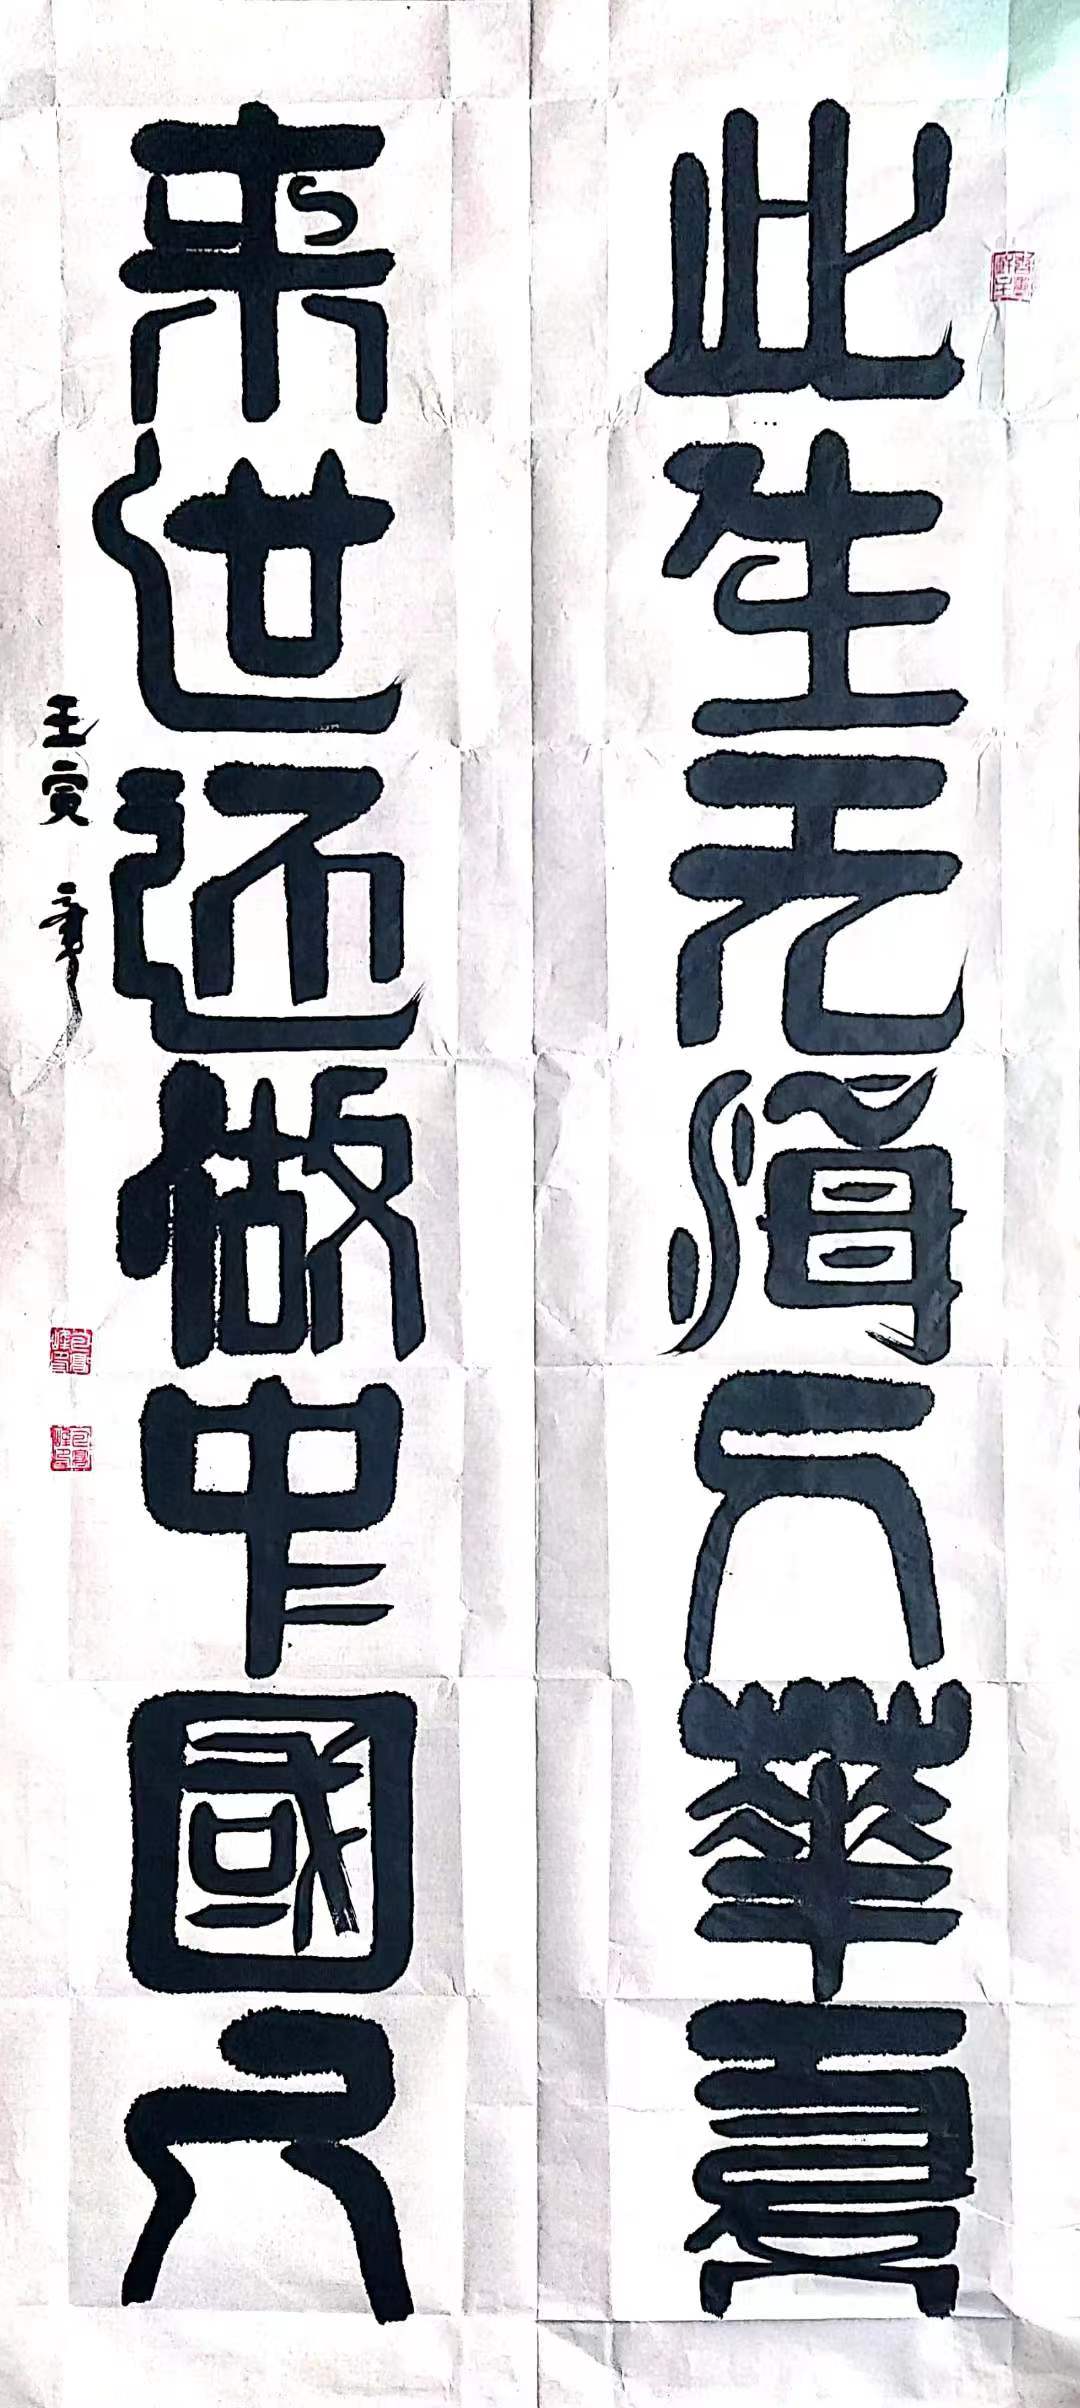 此生无悔入華夏
来世还做中國人
壬寅